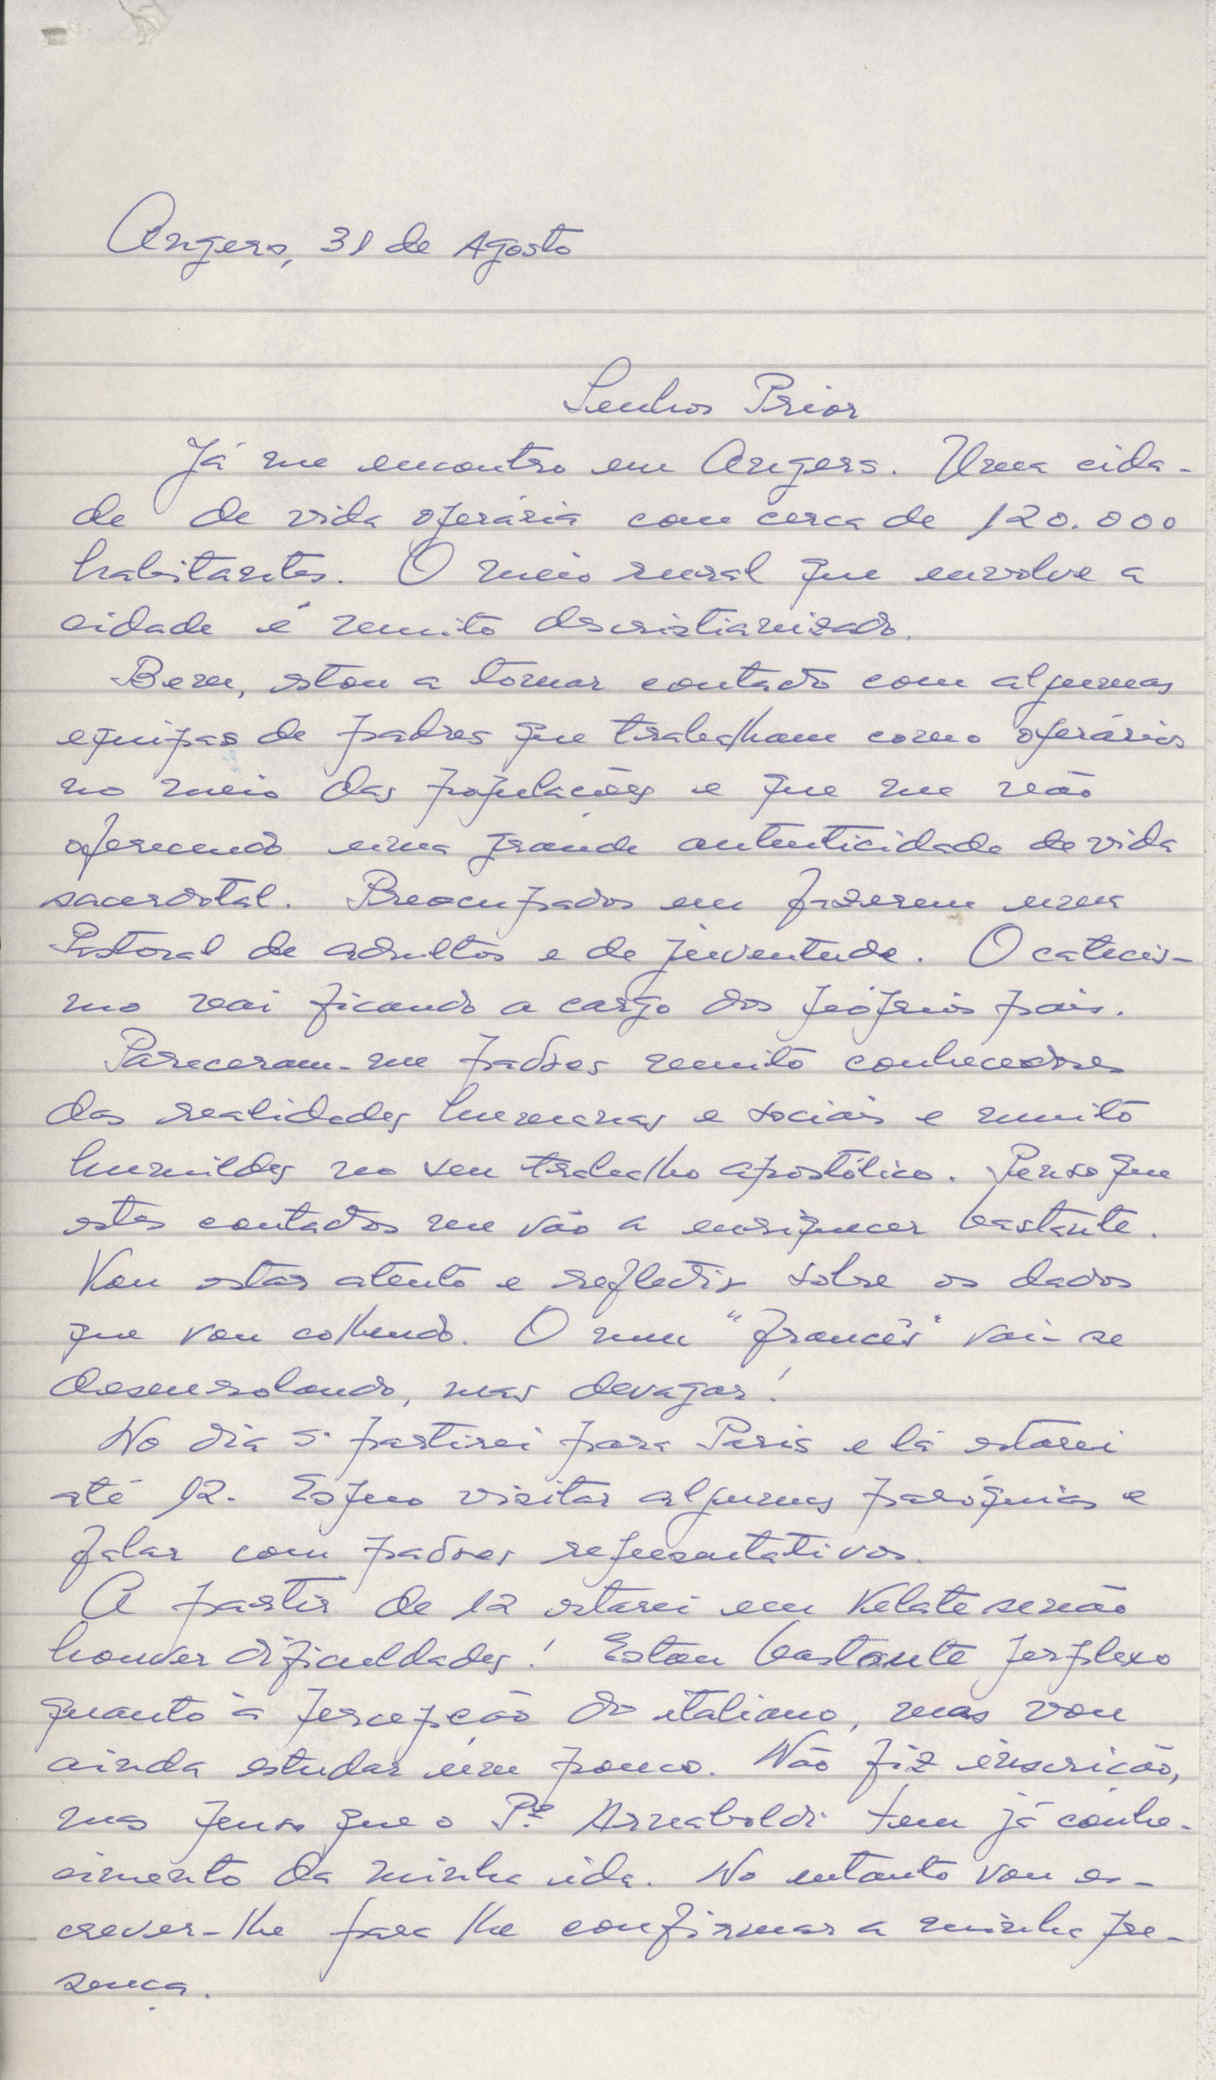 Angers, 31 de Agosto
Senhor Prior
Já me encontro em Angers. Uma cida-
de de vida operária com cerca de 120.000
habitantes. O meio rural que envolve a
cidade é muito descristianizado.
Bem, estou a tomar contacto com algumas
equipas de padres que trabalham como operários
no meio das populações e que me vão
oferecendo uma grande autenticidade de vida
sacerdotal. Preocupados em fazerem uma
Pastoral de adultos e de juventude. O catecis-
mo vai ficando a cargo dos próprios pais.
Pareceram-me padres muito conhecedores
das realidades humanas e sociais e muito
humildes no seu trabalho apostólico. Penso que
estes contactos me vão a enriquecer bastante.
Vou estar atento e reflectir sobre os dados
que vou colhendo. O meu "francês" vai-se
desenrolando, mas devagar!
No dia 5 partirei para Paris e lá estarei
até 12. Espero visitar algumas paróquias e
falar com padres representativos.
A partir de 12 estarei em Velate se não
houver dificuldades! Estou bastante perplexo
quanto à percepção do italiano, mas vou
ainda estudar um pouco. Não fiz inscrição,
mas penso que o Pe Arnaboldi tem já conhe-
cimento da minha ida. No entanto vou es-
crever-lhe para lhe confirmar a minha pre-
sença.